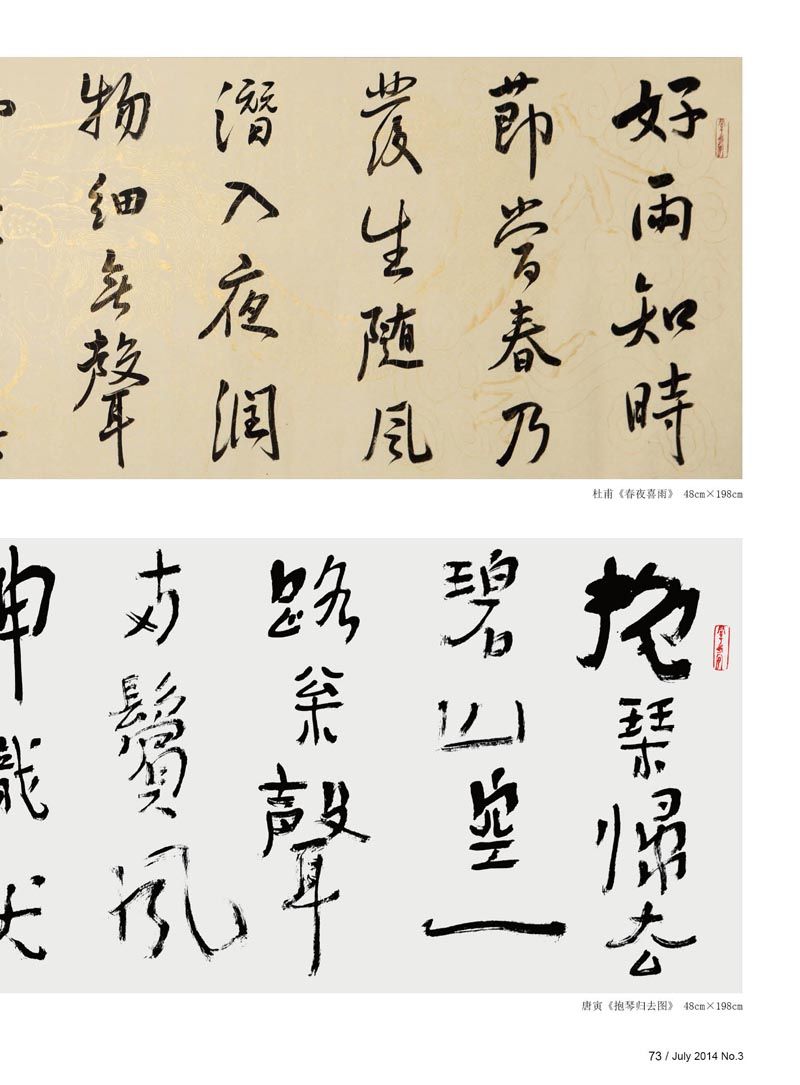 好雨知時
節當春乃
發生隨風
潛入夜潤
物細無聲
杜甫《春夜喜雨》 48cm×198cm
抱琴歸去
碧山空一
路枀聲
兩鬢風
唐寅《抱琴归去图》 48cm×198cm
73 / July 2014 No.3